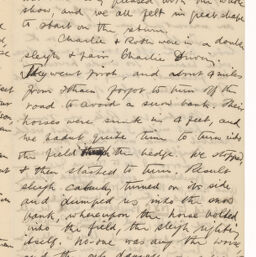 show, and we all felt in great shape
to start on the return.
Charlie & Rode were in a double
sleigh & pair Charlie Driving.
They went first, and about 4 miles
from Athain forgot to turn off the
road to avoid a snow bank. Their
horses were sunk in 4 feet, and
we hadnt quite time to turn into
the field the hedge. We stopped
& then started to turn. Result
sleigh calmly turned on its side
and dumped us into the snow
bank, whereupon the horse bolted
into the field, the sleigh righting
itself. No-one was any the worse
and the